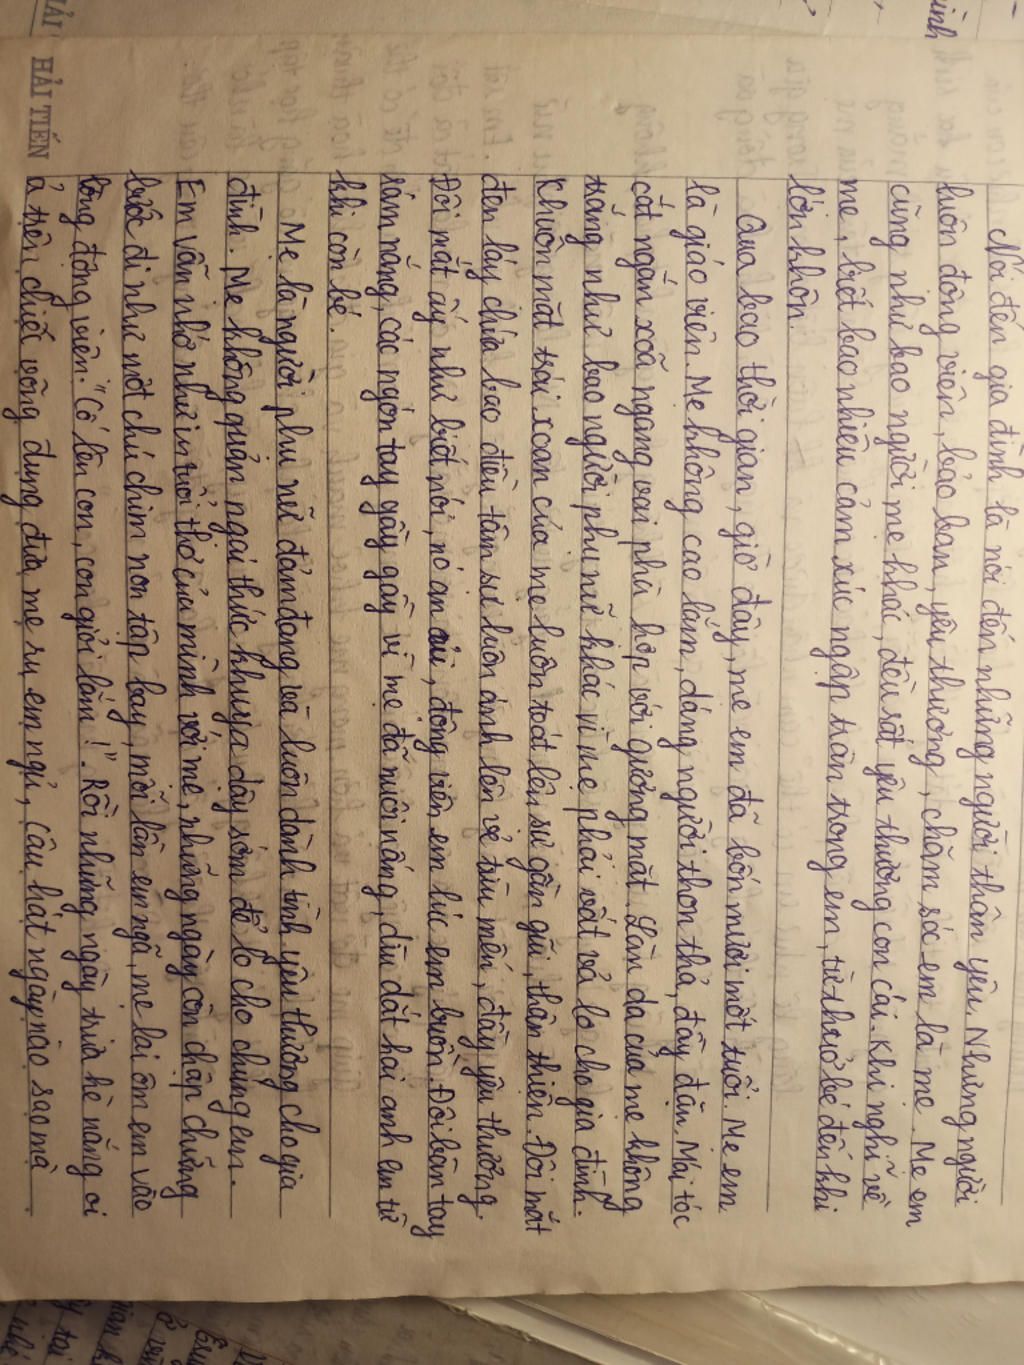 HẢI TIẾN
Nói đến gia đình là nói đến những người thân yêu. Nhưng người
luôn động viên, bảo ban, yêu thương, chăm sóc em là mẹ. Mẹ em
cũng như bao người mẹ khác, đều rất yêu thương con cái. Khi nghĩ về
mẹ, biết bao nhiêu cảm xúc ngập tràn trong em, từ thuở bé đến khi
lớn khôn.
Qua bao thời gian, giờ đây, mẹ em đã bốn mươi mốt tuổi. Mẹ em
là giáo viên. Mẹ không cao lắm, dáng người thon thả, đầy đặn. Mái tóc
cắt ngắn xoã ngang vai phù hợp với gương mặt. Làn da của mẹ không
trắng như bao người phụ nữ khác vì mẹ phải vất vả lo cho gia đình.
Khuôn mặt trái xoan của mẹ luôn toát lên sự gần gũi, thân thiện. Đôi mắt
đen láy chứa bao điều tâm sự luôn ánh lên vẻ trìu mến, đầy yêu thương.
Đôi mắt ấy như biết nói, nó an ủi, động viên em lúc em buồn. Đôi bàn tay
rám nắng, các ngón tay gầy gầy vì mẹ đã nuôi nấng, dìu dắt hai anh em từ
khi còn bé.
Mẹ là người phụ nữ đảm đang và luôn dành tình yêu thương cho gia
đình. Mẹ không quản ngại thức khuya dậy sớm để lo cho chúng em.
Em vẫn nhớ như in tuổi thơ của mình với mẹ, những ngày còn chập chững
bước đi như một chú chim non tập bay, mỗi lần em ngã, mẹ lại ôm em vào
lòng động viên: "Cố lên con, con giỏi lắm!". Rồi những ngày trưa hè nắng oi
ả trên chiếc võng đung đưa, mẹ ru em ngủ, câu hát ngày nào sao mà